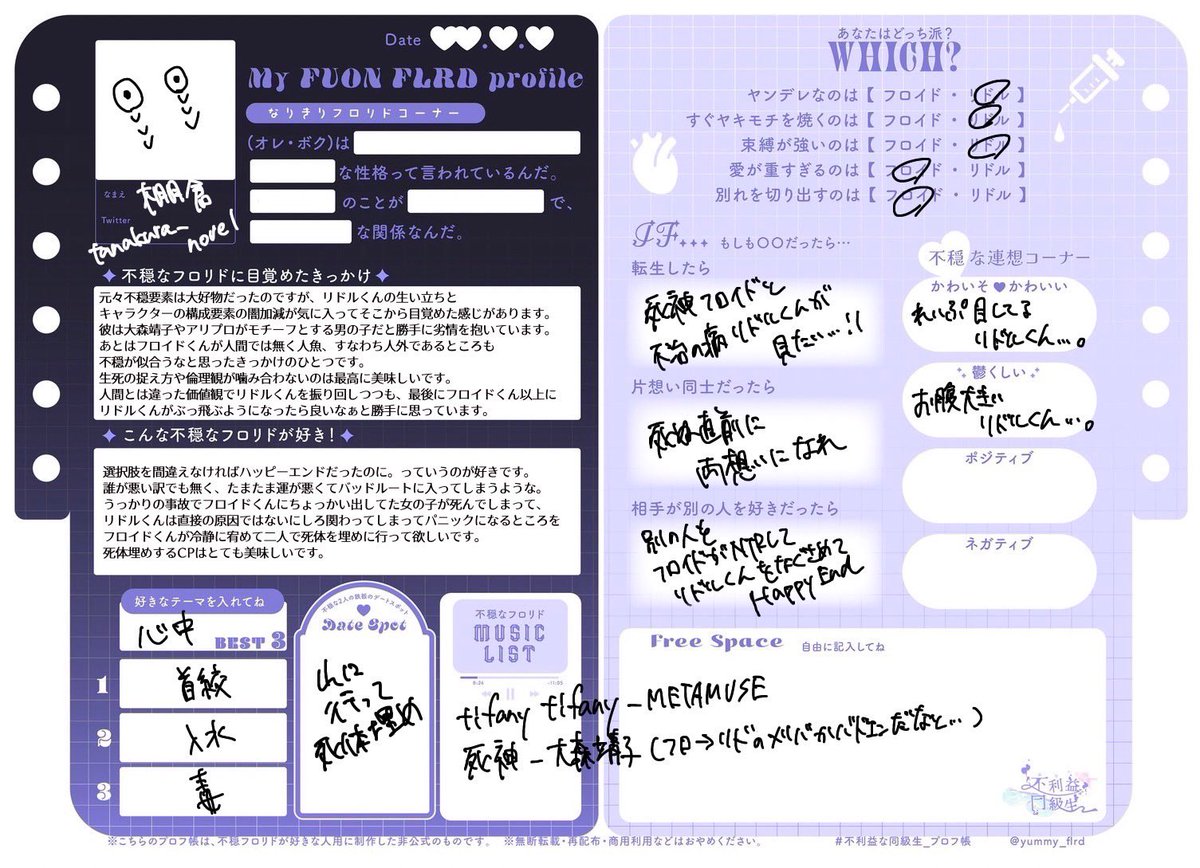 Date
My FUON FLRD profile
なりきりフロリドコーナー
(オレ・ボク)は
な性格って言われているんだ。
のことが で、
な関係なんだ。
なまえ 棚倉
Twitter
tanakura_novel
不穏なフロリドに目覚めたきっかけ
元々不穏要素は大好物だったのですが、リドルくんの生い立ちと
キャラクターの構成要素の闇加減が気に入ってそこから目覚めた感じがあります。
彼は大森靖子やアリプロがモチーフとする男の子だと勝手に劣情を抱いています。
あとはフロイドくんが人間では無く人魚、すなわち人外であるところも
不穏が似合うなと思ったきっかけのひとつです。
生死の捉え方や倫理観が噛み合わないのは最高に美味しいです。
人間とは違った価値観でリドルくんを振り回しつつも、最後にフロイドくん以上に
リドルくんがぶっ飛ぶようになったら良いなぁと勝手に思っています。
こんな不穏なフロリドが好き!
選択肢を間違えなければハッピーエンドだったのに。っていうのが好きです。
誰が悪い訳でも無く、たまたま運が悪くてバッドルートに入ってしまうような。
うっかりの事故でフロイドくんにちょっかい出してた女の子が死んでしまって、
リドルくんは直接の原因ではないにしろ関わってしまってパニックになるところを
フロイドくんが冷静に宥めて二人で死体を埋めに行って欲しいです。
死体埋めするCPはとても美味しいです。
好きなテーマを入れてね
心中
BEST 3
1 首絞
2 入水
3 毒
不穏な2人の鉄板のデートスポット
Date Spot
山に
行って
死体埋め
不穏なフロリド
MUSIC
LIST
0:24 -11:05
tifany tifany - METAMUSE
死神 - 大森靖子 (フロ→リドのメリバかバドエンだなと…)
あなたはどっち派?
WHICH?
ヤンデレなのは【 フロイド ・ リドル 】
すぐヤキモチを焼くのは【 フロイド ・ リドル 】
束縛が強いのは【 フロイド ・ リドル 】
愛が重すぎるのは【 フロイド ・ リドル 】
別れを切り出すのは【 フロイド ・ リドル 】
IF... もしも〇〇だったら…
転生したら
死神フロイドと
不治の病リドルくんが
見たい…!!
片想い同士だったら
死ぬ直前に
両想いになれ
相手が別の人を好きだったら
別の人を
フロイドがNTRして
リドルくんをなぐさめて
Happy End
不穏な連想コーナー
かわいそ♥かわいい
れいぷ目してる
リドルくん…。
鬱くしい
お腹大きい
リドルくん…。
ポジティブ
ネガティブ
Free Space 自由に記入してね
不利益な
同級生
※こちらのプロフ帳は、不穏フロリドが好きな人用に制作した非公式のものです。 ※無断転載・再配布・商用利用などはおやめください。 #不利益な同級生_プロフ帳 @yummy_flrd